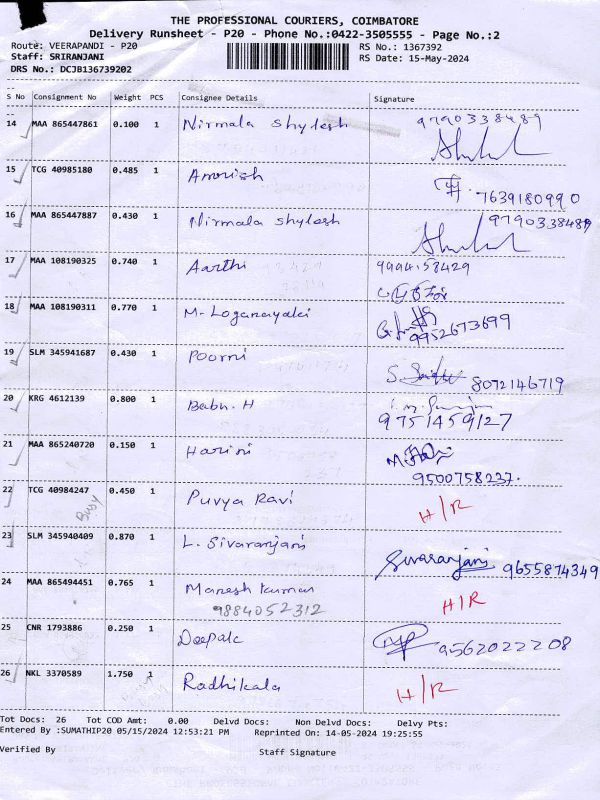 THE PROFESSIONAL COURIERS, COIMBATORE
Delivery Runsheet - P20 - Phone No.:0422-3505555 - Page No.:2
Route: VEERAPANDI - P20 RS No.: 1367392
Staff: SRIRANJANI RS Date: 15-May-2024
DRS No.: DCJB136739202
S No Consignment No Weight PCS Consignee Details Signature
14 MAA 865447861 0.100 1 Nirmala Shylesh 9790338489
15 TCG 40985180 0.485 1 Amrish 7639180990
16 MAA 865447887 0.430 1 Nirmala Shylesh 9790338489
17 MAA 108190325 0.740 1 Aarthi 9994158429
18 MAA 108190311 0.770 1 M. Loganayaki 9952673699
19 SLM 345941687 0.430 1 Poorni 8072146719
20 KRG 4612139 0.800 1 Babu. H 9751459127
21 MAA 865240720 0.150 1 Harini 9500758237.
22 TCG 40984247 0.450 1 Puvya Ravi H/R
Busy
23 SLM 345940409 0.870 1 L. Sivaranjani Sivaranjani 9655874349
24 MAA 865494451 0.765 1 Manesh kumar H/R
9884052312
25 CNR 1793886 0.250 1 Deepak 9562022208
26 NKL 3370589 1.750 1 Radhikala H/R
Tot Docs: 26 Tot COD Amt: 0.00 Delvd Docs: Non Delvd Docs: Delvy Pts:
Entered By :SUMATHIP20 05/15/2024 12:53:21 PM Reprinted On: 14-05-2024 19:25:55
Verified By Staff Signature